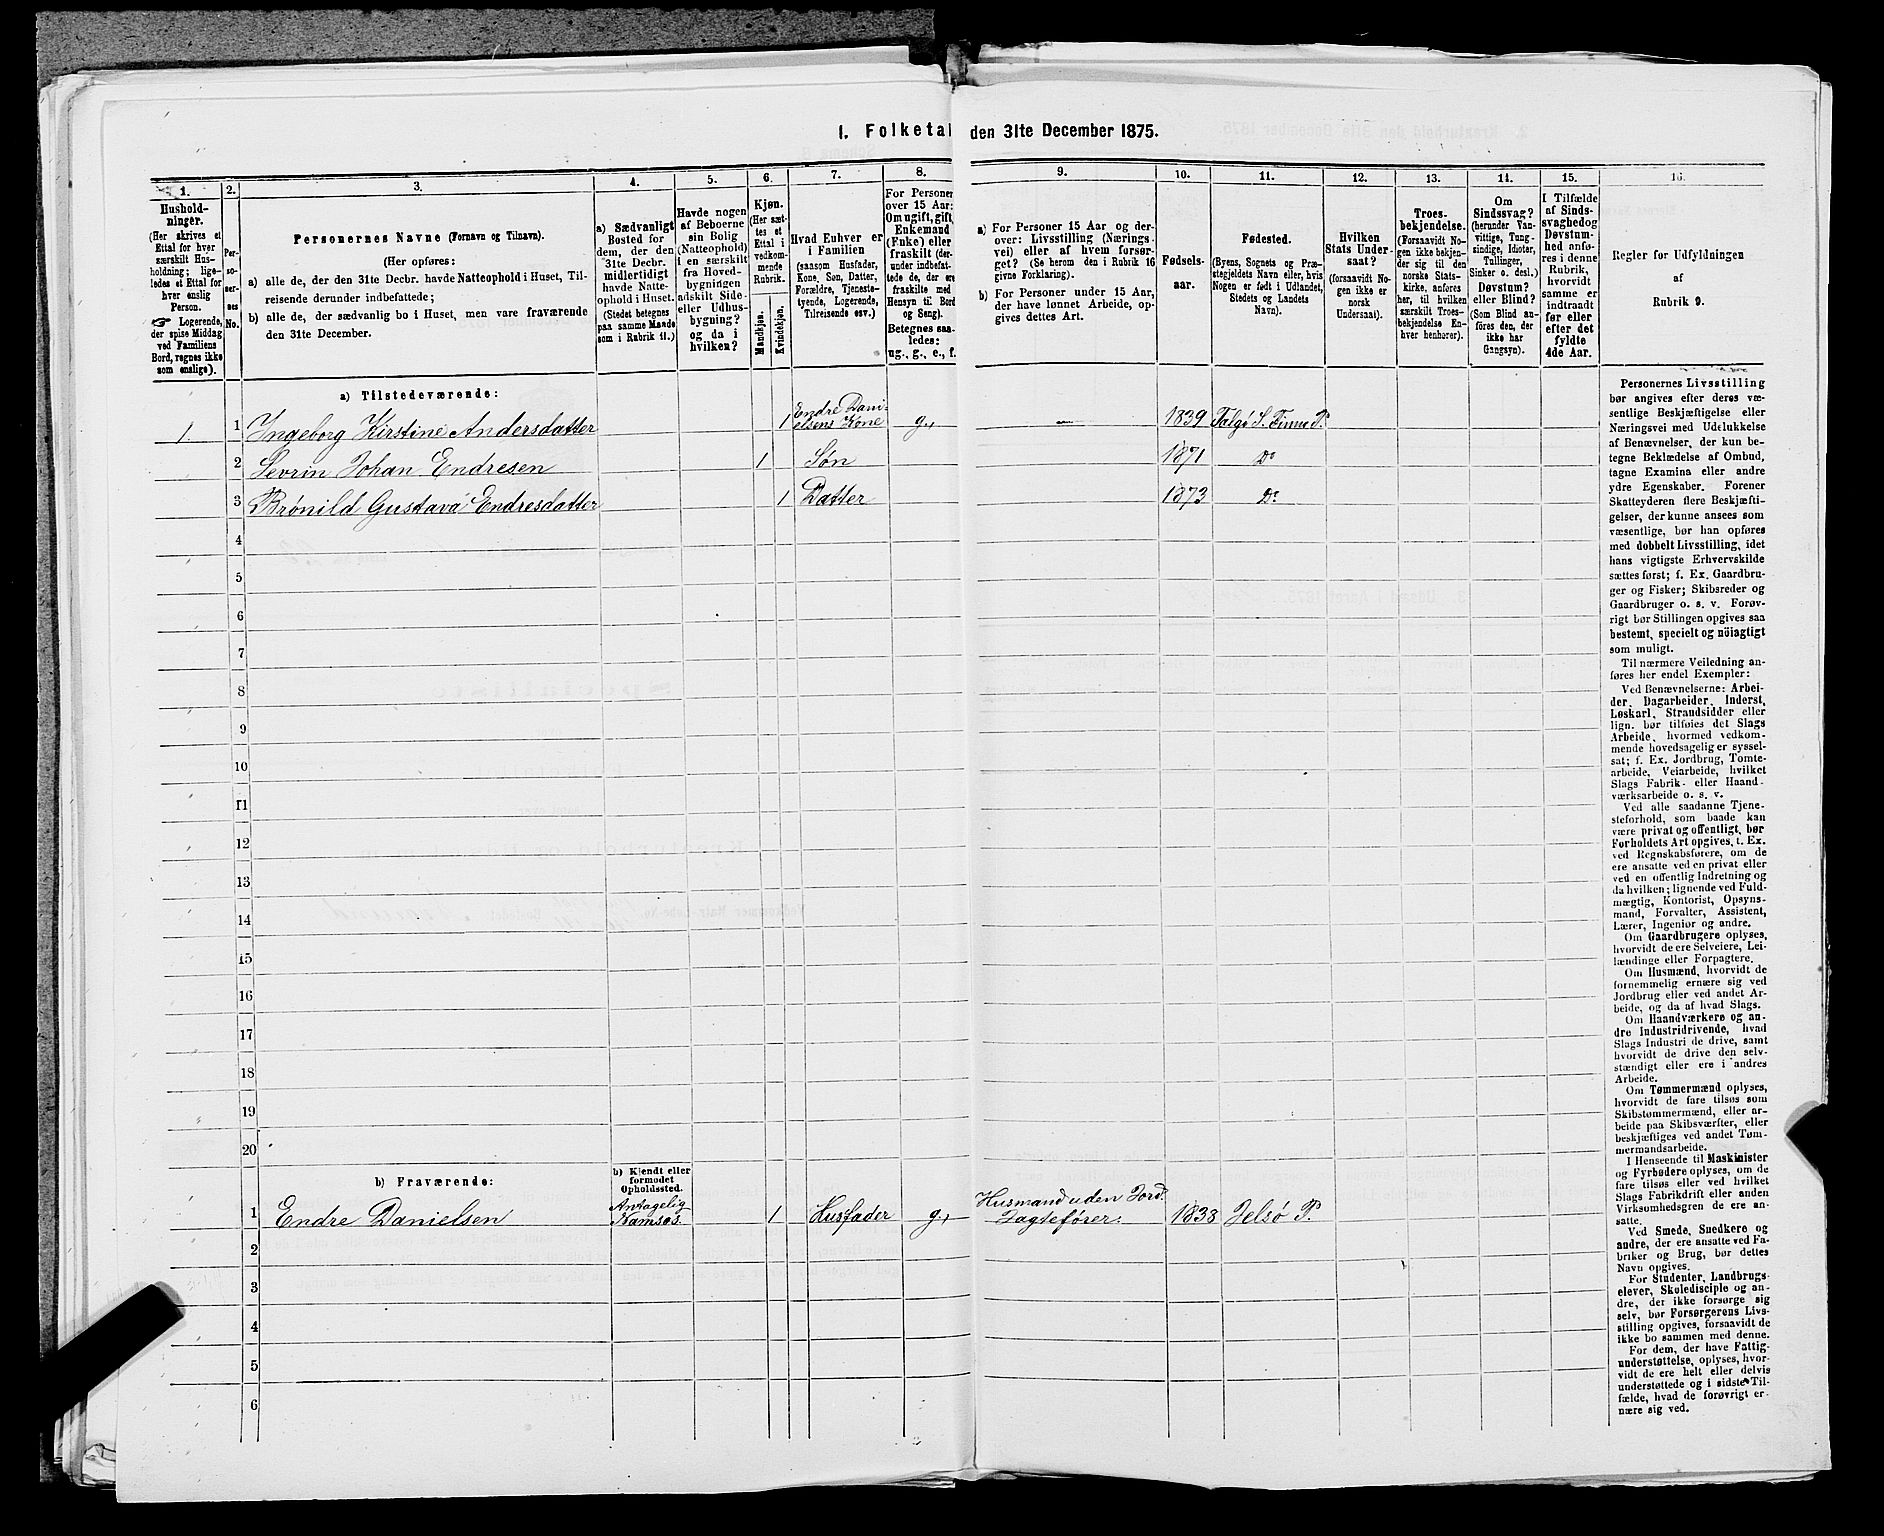 1. Folketal den 31te December 1875.
1.
Hushold-
ninger.
(Her skrives et
Ettal for hver
særskilt Hus-
holdning; lige-
ledes et Ettal for
hver enslig
Person.
☞ Logerende,
der spise Middag
ved Familiens
Bord, regnes ikke
som enslige).
2.
Per-
so-
ner-
nes
No.
3.
Personernes Navne (Fornavn og Tilnavn).
(Her opføres:
a) alle de, der den 31te Decbr. havde Natteophold i Huset, Til-
reisende derunder indbefattede;
b) alle de, der sædvanlig bo i Huset, men vare fraværende
den 31te December.
4.
a) Sædvanligt
Bosted for
dem, der den
31te Decbr.
midlertidigt
havde Natte-
ophold i Huset.
(Stedet betegnes
paa samme Maade
som i Rubrik 11.)
5.
Havde nogen
af Beboerne
sin Bolig
(Natteophold)
i en særskilt
fra Hoved-
bygningen
adskilt Side-
eller Udhus-
bygning?
og da i
hvilken?
6.
Kjøn.
(Her sæt-
tes et
Ettal i
vedkom-
mende
Rubrik.
Mandkjøn.
Kvindekjøn.
7.
Hvad Enhver er
i Familien
(saasom Husfader,
Kone, Søn, Datter,
Forældre, Tjeneste-
tyende, Logerende,
Tilreisende osv.)
8.
For Personer
over 15 Aar:
Om ugift, gift,
Enkemand
(Enke) eller
fraskilt (der-
under indbefat-
tede de, der ere
fraskilte med
Hensyn til Bord
og Seng).
Betegnes saa-
ledes:
ug., g., e., f.
9.
a) For Personer 15 Aar og der-
over: Livsstilling (Nærings-
vei) eller af hvem forsør-
get? (Se herom den i Rubrik 16
givne Forklaring).
b) For Personer under 15 Aar,
der have lønnet Arbeide, op-
gives dettes Art.
10.
Fødsels-
aar.
11.
Fødested.
(Byens, Sognets og Præ-
stegjeldets Navn eller, hvis
Nogen er født i Udlandet,
Stedets og Landets
Navn).
12.
Hvilken
Stats Under-
saat?
(forsaavidt No-
gen ikke er
norsk
Undersaat).
13.
Troes-
bekjendelse.
(Forsaavidt No-
gen ikke bekjen-
der sig til den
norske Stats-
kirke, anføres
her, til hvilken
særskilt Troes-
bekjendelse En-
hver henhører).
14.
Om
Sindssvag?
(herunder Van-
vittige, Tung-
sindige, Idioter,
Tullinger,
Sinker o. desl.)
Døvstum?
eller Blind?
(Som Blind an-
føres den, der
ikke har
Gangsyn).
15.
I Tilfælde
af Sinds-
svaghed og
Døvstum-
hed anfø-
res i denne
Rubrik,
hvorvidt
samme er
indtraadt
før eller
efter det
fyldte
4de Aar.
16.
Regler for Udfyldningen
af
Rubrik 9.
a) Tilstedeværende:
1. 1 Ingeborg Kirstine Andersdatter 1 Endre Dani-
elsens Kone g., — 1839 Talgø S. Finnø P.
2 Sevrin Johan Endresen 1 Søn 1871 Do
3 Brønild Gustava Endresdatter 1 Datter 1873 Do
4
5
6
7
8
9
10
11
12
13
14
15
16
17
18
19
20
b) Fraværende:
b) Kjendt eller
formodet
Opholdssted.
1 Endre Danielsen Antagelig
Namsos. 1 Husfader g., Husmand uden Jord.
Jagtefører. 1838 Jelsø P.
2
3
4
5
6
Personernes Livsstilling
bør angives efter deres væ-
sentlige Beskjæftigelse eller
Næringsvei med Udelukkelse
af Benævnelser, der kun be-
tegne Beklædelse af Ombud,
tagne Examina eller andre
ydre Egenskaber. Forener
Skatteyderen flere Beskjæfti-
gelser, der kunne ansees som
væsentlige, bør han opføres
med dobbelt Livsstilling, idet
hans vigtigste Erhvervskilde
sættes først; f. Ex. Gaardbru-
ger og Fisker; Skibsreder og
Gaardbruger o. s. v. Forøv-
rigt bør Stillingen opgives saa
bestemt, specielt og nöiagtigt
som muligt.
Til nærmere Veiledning an-
føres her endel Exempler:
Ved Benævnelserne: Arbei-
der, Dagarbeider, Inderst,
Løskarl, Strandsidder eller
lign. bør tilføies det Slags
Arbeide, hvormed vedkom-
mende hovedsagelig er syssel-
sat; f. Ex. Jordbrug, Tomte-
arbeide, Veiarbeide, hvilket
Slags Fabrik- eller Haand-
værksarbeide o. s. v.
Ved alle saadanne Tjene-
steforhold, som baade kan
være privat og offentligt, bør
Forholdets Art opgives, t. Ex.
ved Regnskabsførere, om de
ere ansatte ved en privat eller
ved en offentlig Indretning og
da hvilken; lignende ved Fuld-
mægtig, Kontorist, Opsyns-
mand, Forvalter, Assistent,
Lærer, Ingeniør og andre.
Om Gaardbrugere oplyses,
hvorvidt de ere Selveiere, Lei-
lændinge eller Forpagtere.
Om Husmænd, hvorvidt de
fornemmelig ernære sig ved
Jordbrug eller ved andet Ar-
beide, og da af hvad Slags.
Om Haandværkere og an-
dre Industridrivende, hvad
Slags Industri de drive, samt
hvorvidt de drive den selv-
stændigt eller ere i andres
Arbeide.
Om Tømmermænd oplyses,
hvorvidt de fare tilsøs som
Skibstømmermænd, eller ar-
beide paa Skibsværfter, eller
beskjæftiges ved andet Tøm-
mermandsarbeide.
I Henseende til Maskinister
og Fyrbødere oplyses, om de
fare tilsøs eller ved hvilket
Slags Fabrikdrift eller anden
Virksomhedsgren de ere an-
satte.
Ved Smede, Snedkere og
andre, der ere ansatte ved Fa-
briker og Brug, bør dettes
Navn opgives.
For Studenter, Landbrugs-
elever, Skoledisciple og an-
dre, der ikke forsørge sig
selv, bør Forsørgerens Livs-
stilling opgives, forsaavidt de
ikke bo sammen med denne.
For dem, der have Fattig-
understøttelse, oplyses, hvor-
vidt de ere helt eller delvis
understøttede og i sidste Til-
fælde, hvad de forøvrigt er-
nære sig ved.